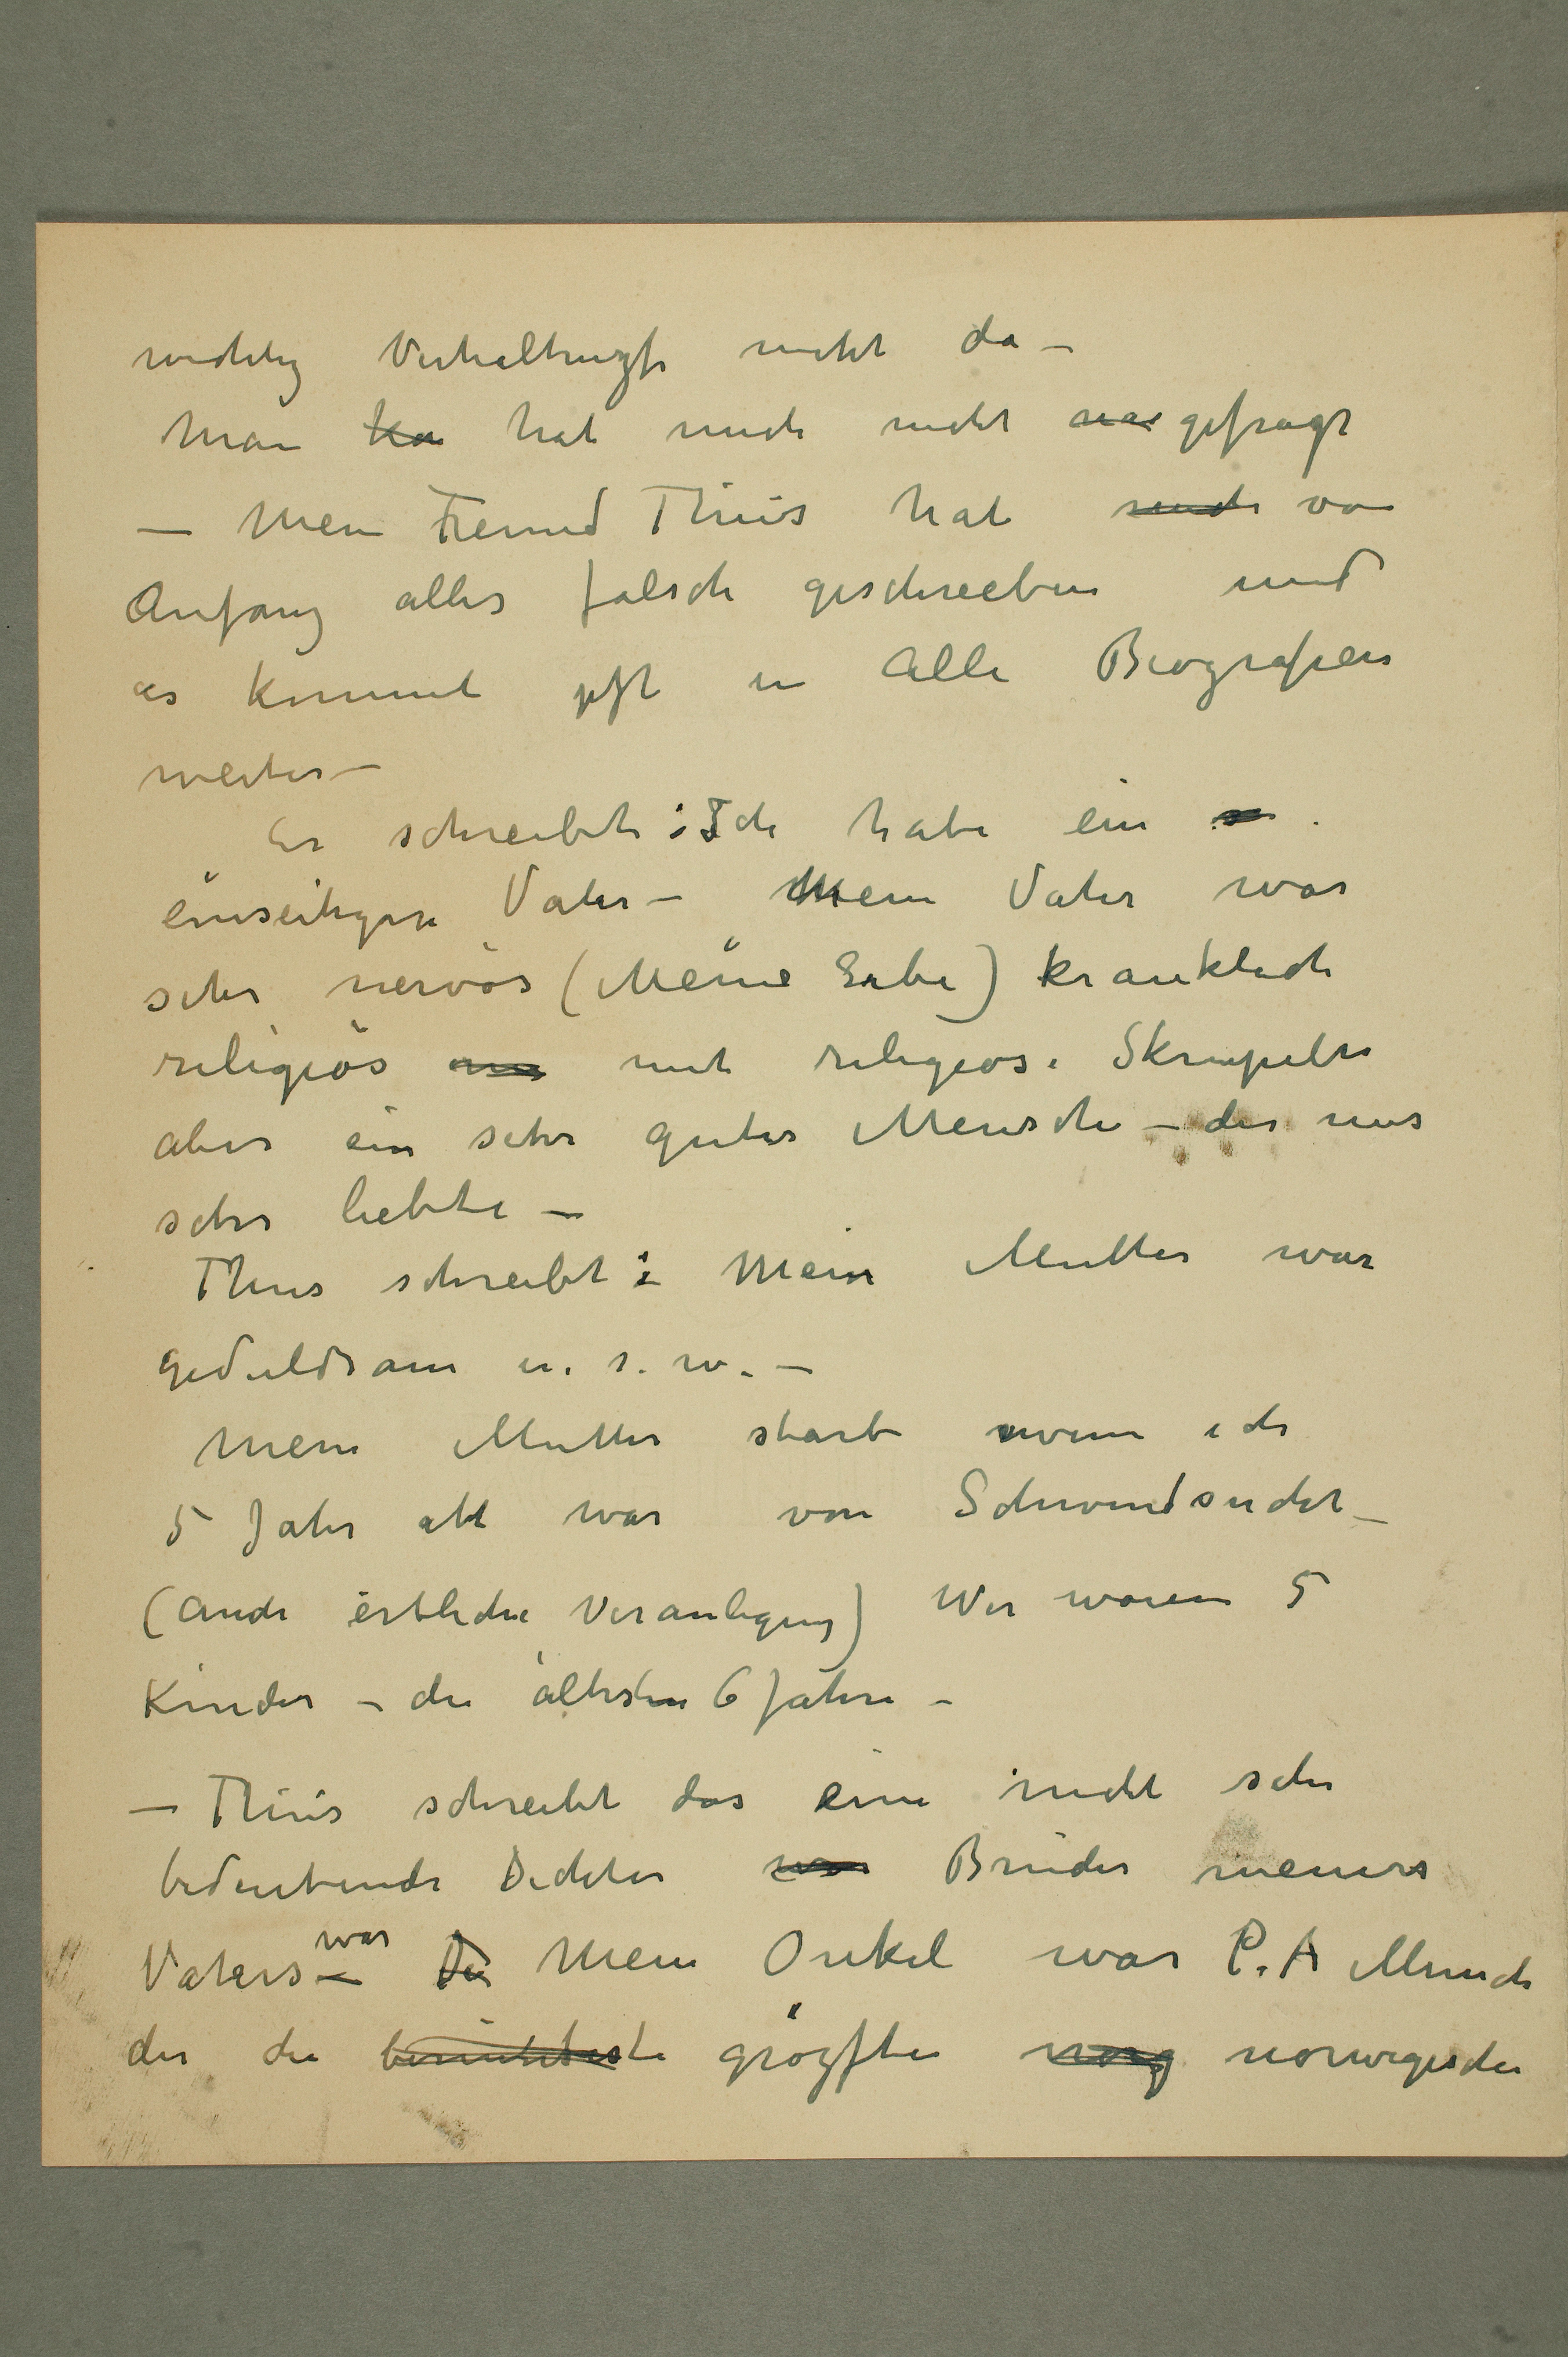 wichtig Verhaltnisse nicht da –
Man ha hat mich nicht nac gefragt
– Mein Freund Thiis hat mich von
Anfang alles falsch geschrieben und
es kommt oft in Alle Biografien
weiter –
Er schreibt: Ich habe ein
einseitigen Vater – Mein Vater war
sehr nervös (Meine Erbe) kranklich
religiös mit religiöse Skrupeln
aber ein sehr guter Mensch – der uns
sehr liebte –
Thiis schreibt: Mein Mutter war
geduldsam u. s. w. –
Mein Mutter starb wenn ich
5 Jahr alt war von Schwindsucht –
(Auch erbliche Veranlegung) Wir waren 5
Kinder – die ältesten 6 Jahre –
– Thiis schreibt das eine nicht sehr
bedeutende Dichter war Bruder meines
Vaters war – Der Mein Onkel war P. A Munch
der die berühmteste grözste norg norwegische